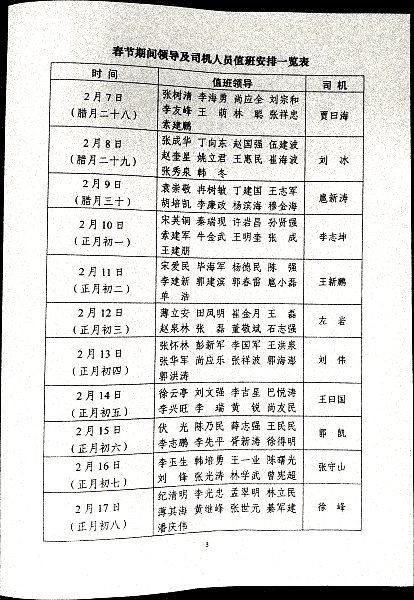 春节期间领导及司机人员值班安排一览表
时 间 值班领导 司 机
2月7日
(腊月二十八)
张树清 李海勇 尚应全 刘宗和
李友峰 王 萌 林 聪 张祥忠
索建鹏
贾曰海
2月8日
(腊月二十九)
张成华 丁向东 赵国强 伍建波
赵奎星 姚立君 王惠民 崔海波
张秀泉 韩 冬
刘 冰
2月9日
(腊月三十)
袁崇敬 冉树敏 丁建国 王志军
胡培凯 李廉政 杨滨海 穆金海
扈新涛
2月10日
(正月初一)
宋英钢 秦瑞现 许岩昌 孙贤强
索建军 牛金武 王明奎 张 成
王建朋
李志坤
2月11日
(正月初二)
宋爱民 毕海军 杨德民 陈 强
李建新 郭建滨 郭春雷 扈小磊
单 浩
王新鹏
2月12日
(正月初三)
薄立安 田凤明 崔金月 王 磊
赵泉林 张 磊 董敬斌 石志强
左 岩
2月13日
(正月初四)
张怀林 彭新军 李国军 王洪泉
张华军 尚应乐 张祥波 郭海澎
郭洪涛
刘 伟
2月14日
(正月初五)
徐云亭 刘文强 李吉星 巴悦涛
李兴旺 李 瑞 黄 锐 尚友民
王曰国
2月15日
(正月初六)
伏 光 陈乃民 薛志强 王民民
李志鹏 李先平 胥新涛 徐得明
郭 凯
2月16日
(正月初七)
李玉生 韩培勇 王一业 陈曙光
刘 锋 张光涛 林学武 曾宪超
张守山
2月17日
(正月初八)
纪清明 李光忠 孟翠明 林立民
薄其海 黄继峰 张世元 綦军建
潘庆伟
徐 峰